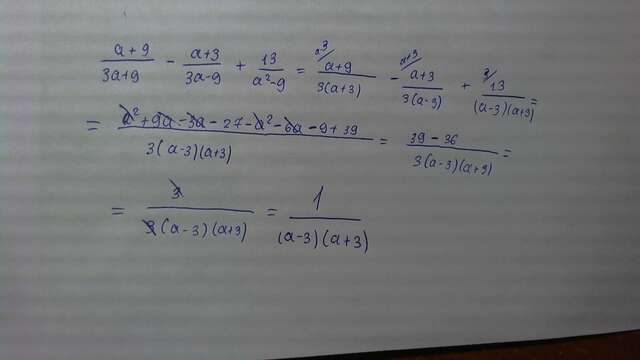 (a+9)/(3a+9) - (a+3)/(3a-9) + 13/(a²-9) = a-3/ (a+9)/(3(a+3)) - a+3/ (a+3)/(3(a-3)) + 3/ 13/((a-3)(a+3)) =
= (a²+9a-3a-27-a²-6a-9+39)/(3(a-3)(a+3)) = (39-36)/(3(a-3)(a+3)) =
= 3/(3(a-3)(a+3)) = 1/((a-3)(a+3))